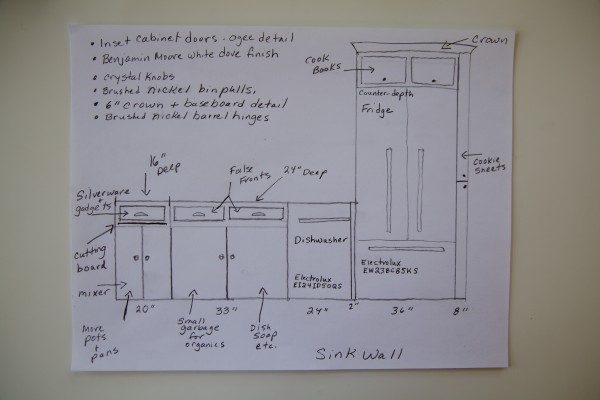 • Inset cabinet doors - ogee detail
• Benjamin Moore white dove finish
• Crystal Knobs
• Brushed nickel binpulls.
• 6" crown + baseboard detail
• Brushed Nickel barrel hinges
Crown
Cook
Books
Counter-depth
Fridge
Cookie
Sheets
16"
Deep
False
Fronts
24" Deep
Silverware
+ gadgets
Cutting
board
mixer
More
pots
+
pans
Small
garbage
for
organics
Dish
Soap
etc.
Dishwasher
Electrolux
EI24ID50QS
Electrolux
EW23BC85KS
20"
33"
24"
2"
36"
8"
Sink Wall